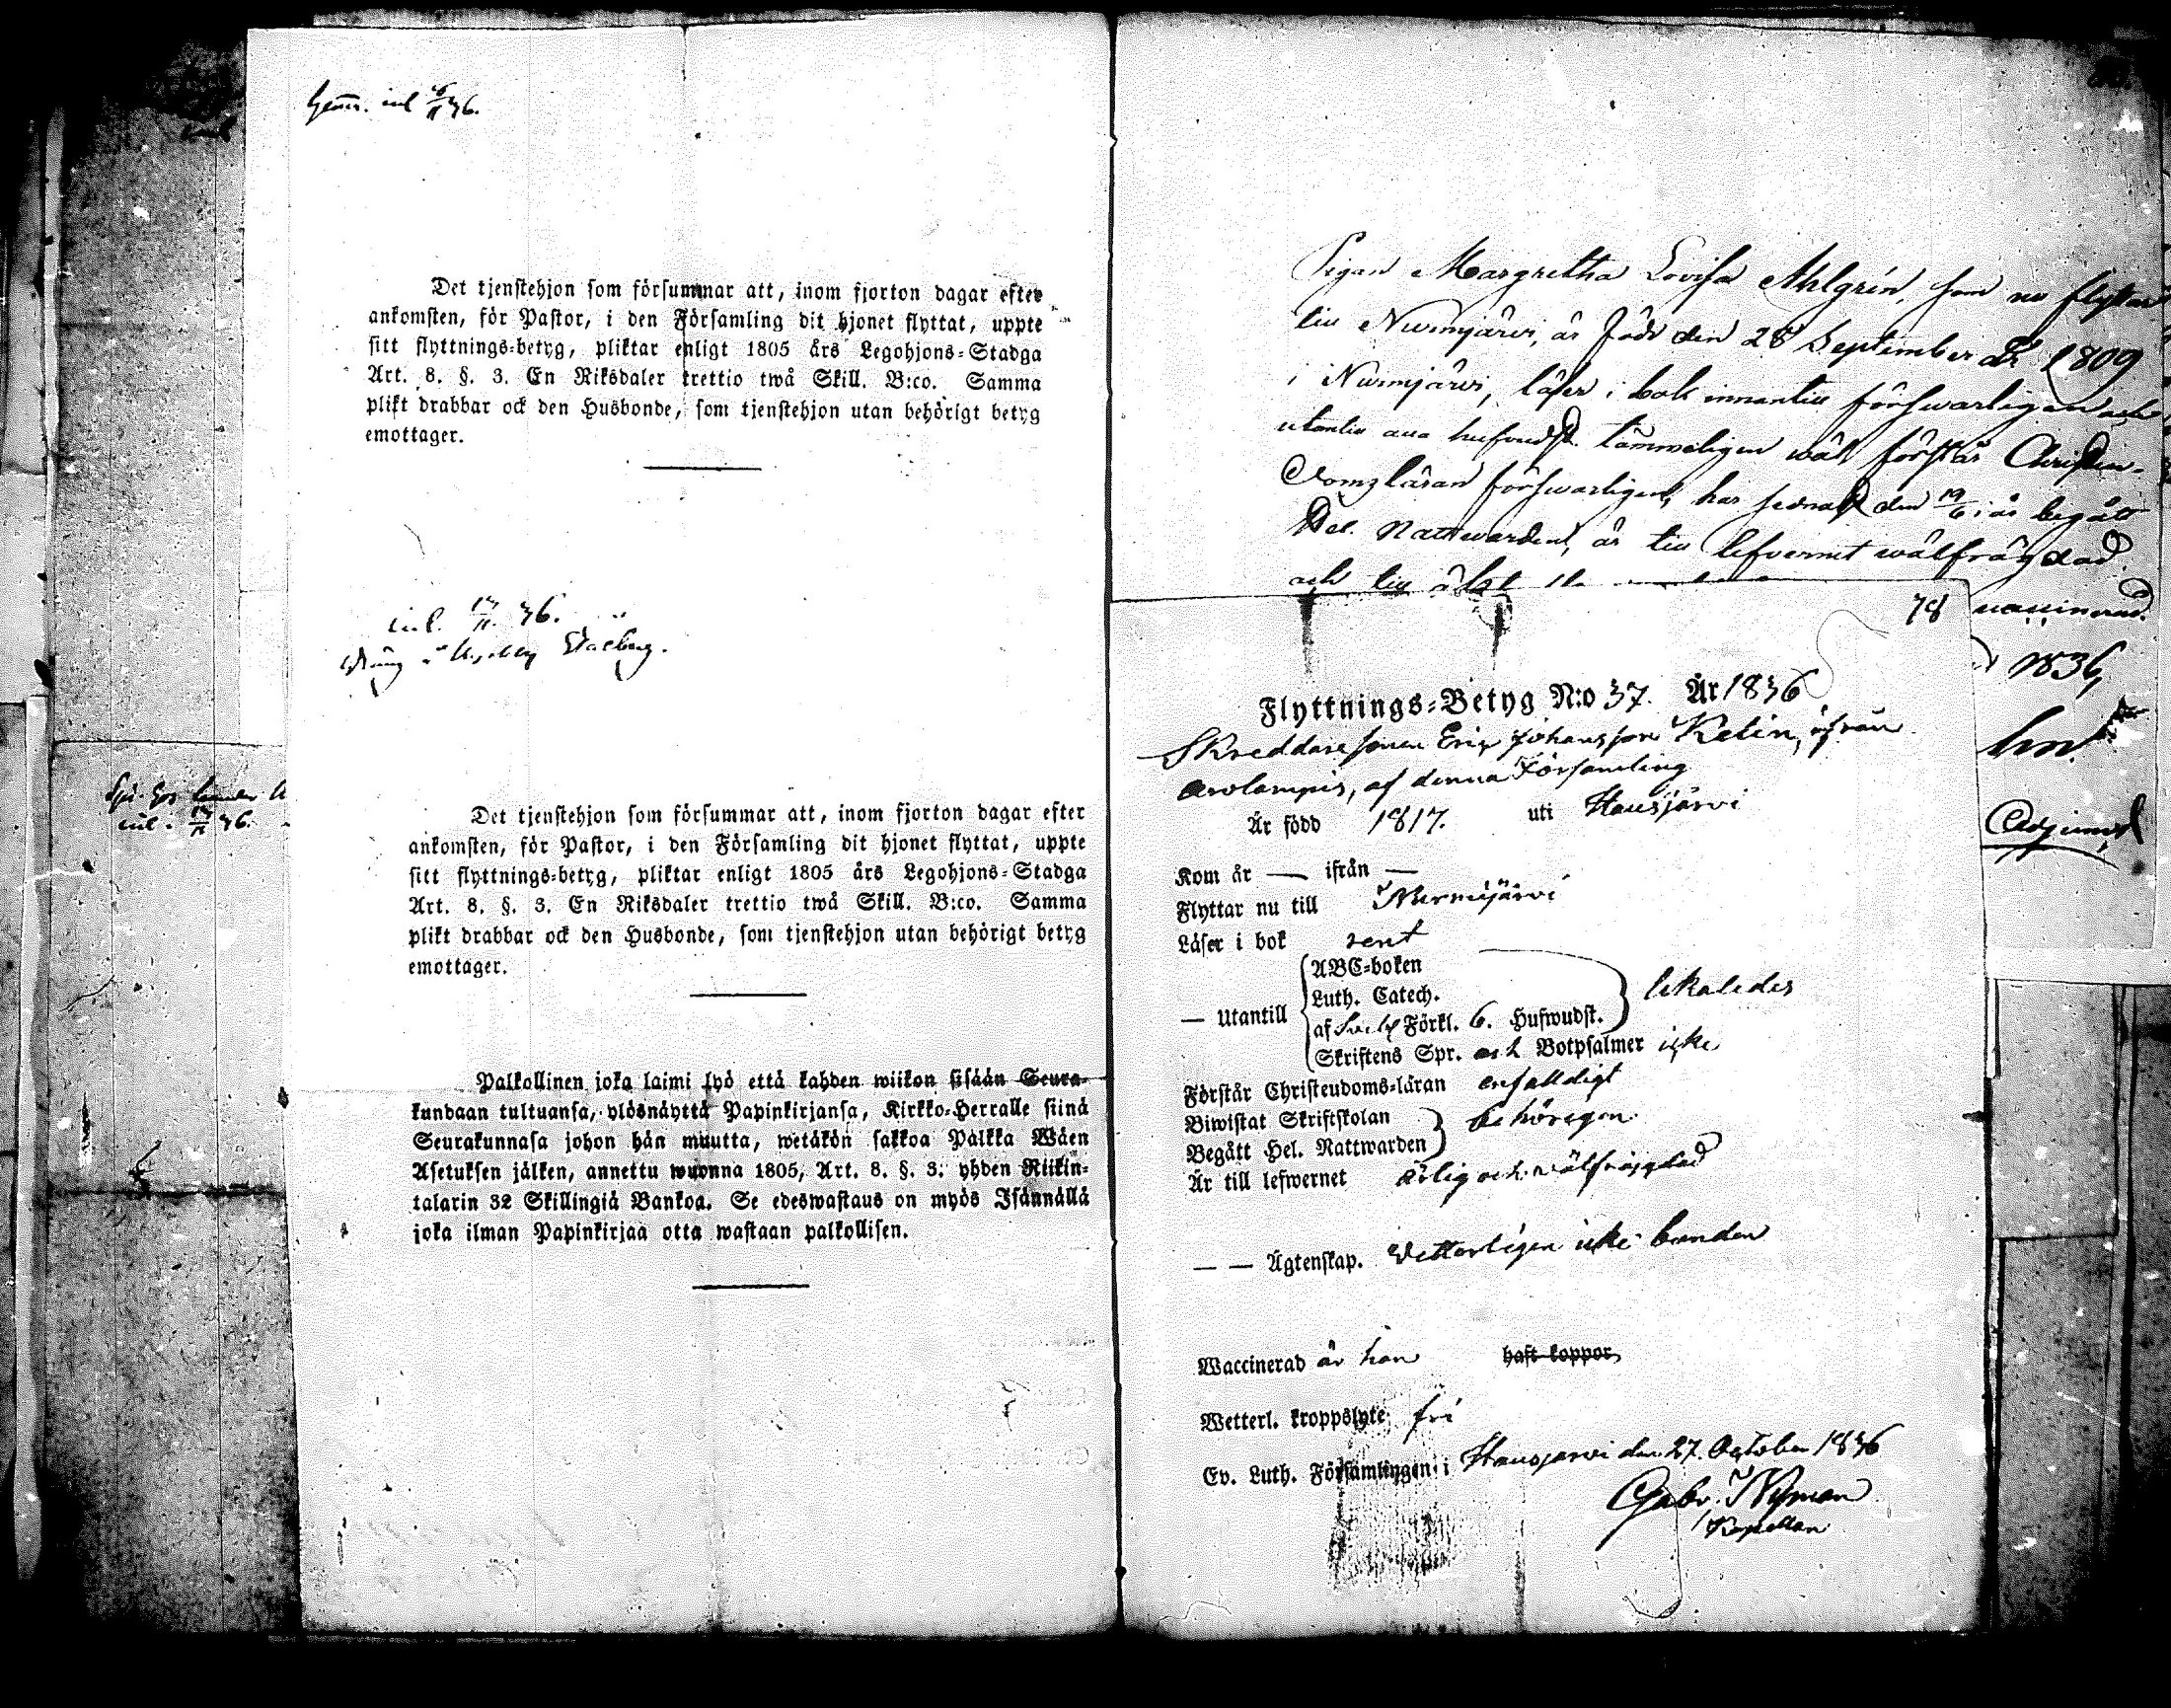 inl 16/11 36.
Det tjenstehjon som försummar att, inom fjorton dagar efter
ankomsten, för Pastor, i den Församling dit hjonet flyttat, uppte
sitt flyttnings-betyg, pliktar enligt 1805 års Legohjons-Stadga
Art. 8. §. 3. En Riksdaler trettio twå Skill. B:co. Samma
plikt drabbar ock den Husbonde, som tjenstehjon utan behörigt betyg
emottager.
inl. 13/11 36.
Dräng
inl. 36.
Det tjenstehjon som försummar att, inom fjorton dagar efter
ankomsten, för Pastor, i den Församling dit hjonet flyttat, uppte
sitt flyttnings-betyg, pliktar enligt 1805 års Legohjons-Stadga
Art. 8. §. 3. En Riksdaler trettio twå Skill. B:co. Samma
plikt drabbar ock den Husbonde, som tjenstehjon utan behörigt betyg
emottager.
Palkollinen joka laimi lyö että kahden wiikon sisään Seura-
kundaan tultuansa, ylösnäyttä Papinkirjansa, Kirkko-Herralle siinä
Seurakunnasa johon hän muutta, wetäkön sakkoa Palkka Wäen
Asetuksen jälken, annettu wuonna 1805, Art. 8. §. 3. yhden Riikin-
talarin 32 Skillingiä Bankoa. Se edeswastaus on myös Isännällä
joka ilman Papinkirjaa otta wastaan palkollisen.
Pigan Margretha Lovisa Ahlgrén, som nu flyttar
till Nurmijärvi, är född den 28 September år 1809
i Nurmijärvi, läser i bok innantill försvarligen och
utantill alla hufvudst. tämmeligen väl, förstår Christen-
domsläran försvarligen, har sednast den 19/6 i år begått
Hel. Nattvarden, är till lefvernet välfrägdad
och till
vaccinerad.
1836,
Adjunct
78
Flyttnings-Betyg N:o 37. År 1836
Skreddaresonen Eric Johansson Kelin, ifrån
Arolampis, af denna Församling
Är född 1817. uti Hausjärvi
Kom år — ifrån —
Flyttar nu till Nurmijärvi
Läser i bok rent
— Utantill
ABC-boken
Luth. Catech.
af Sveb. Förkl. 6. Hufwudst.
likaledes
Skriftens Spr. och Botpsalmer icke
Förstår Christendoms-läran enfalldigt
Biwistat Skriftskolan
Begått Hel. Nattwarden
behörigen
Är till lefwernet ärlig och välfräjgdad
— — Ägtenskap. Vetterligen icke bunden
Waccinerad är han haft koppor
Wetterl. kroppslyte fri
Ev. Luth. Församlingen i Hausjärvi den 27. October 1836
Gabr. Nyman
Kapellan